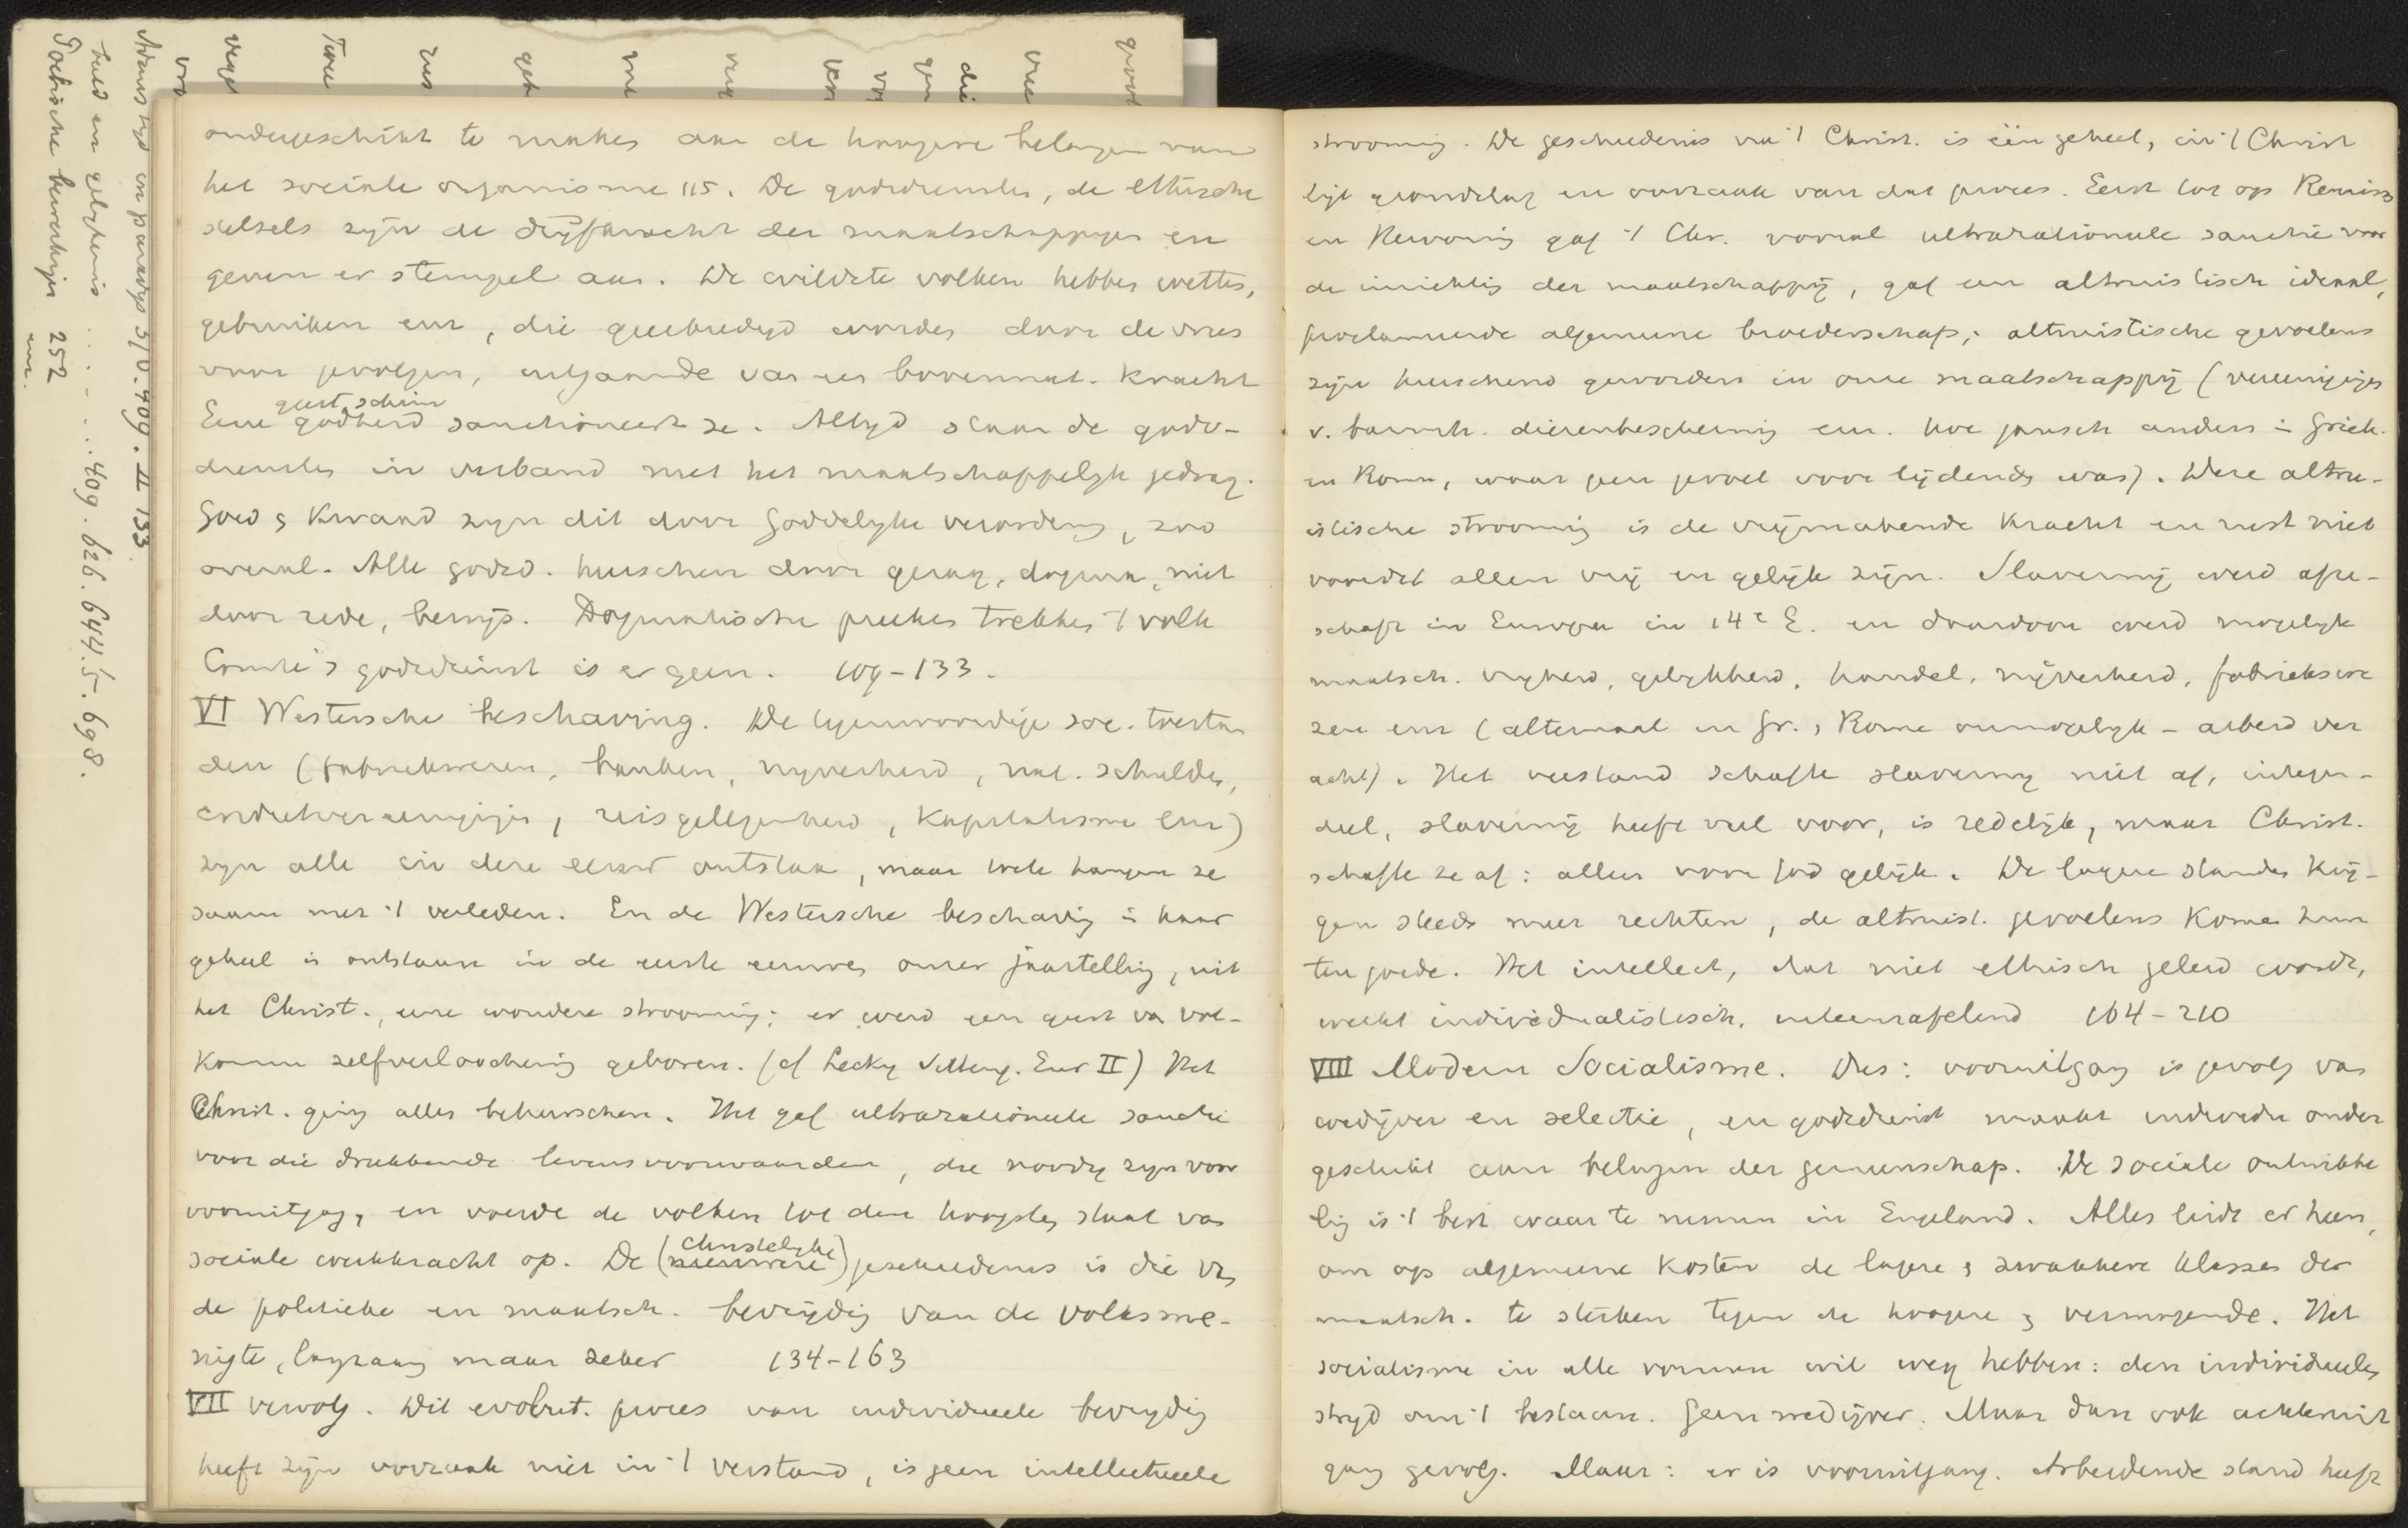 ondergeschikt te maken aan de hoogere belangen van
het sociale organisme 115. De godsdiensten, de ethische
stelsels zijn de drijfkracht der maatschappijen en
geven er stempel aan. De wildste volken hebben wetten,
gebruiken enz, die geëerbiedigd worden door de vrees
voor gevolgen, uitgaande van een bovennat. kracht
Eene godheid sanctioneert ze. Altijd staan de gods-
geest, schim
diensten in verband met het maatschappelijk gedrag.
Goed & kwaad zijn dit door Goddelijke verordening, zoo
overal. Alle godsd. heerschen door gezag, dogma, niet
door rede, bewijs. Dogmatische preeken trekken 't volk
Comte's godsdienst is er geen. 109-133.
VI Westersche beschaving. De tegenwoordige soc. toestan
den (fabriekwezen, banken, nijverheid, nat. schulden,
credietvereenigingen, reisgelegenheid, kapitalisme enz)
zijn alle in deze eeuw ontstaan, maar toch hangen ze
saam met 't verleden. En de Westersche beschaving in haar
geheel is ontstaan in de eerste eeuwen onzer jaartelling, uit
het Christ., eene wondere strooming: er werd een geest van vol-
komen zelfverloochening geboren. (cf Lecky Eur II) Het
Christ. ging alles beheerschen. Het gaf ultrarationeele sanctie
voor die drukkende levensvoorwaarden, die noodig zijn voor
vooruitgang, en voerde de volken tot den hoogsten staat van
sociale werkkracht op. De (nieuwere) geschiedenis is die van
christelijke
de politieke en maatsch. bevrijding van de volksme-
nigte, langzaam maar zeker 134-163
VII vervolg. Dit evolut. proces van individueele bevrijding
heeft zijn oorzaak niet in 't verstand, is geen intellectueele
strooming. De geschiedenis van 't Christ. is één geheel, in 't Christ
ligt grondslag en oorzaak van dat proces. Eerst tot op Renaiss
en Hervorming gaf 't Chr. vooral ultrarationeele sanctie voor
de inrichting der maatschappij, gaf een altruistisch ideaal,
proclameerde algemeene broederschap; altruistische gevoelens
zijn heerschend geworden in onze maatschappij (vereenigingen
v. barmh. dierenbescherming enz. hoe gansch anders in Griek.
en Rome, waar geen gevoel voor lijdende was). Deze altru-
istische strooming is de vrijmakende kracht en rust niet
voordat allen vrij en gelijk zijn. Slavernij werd afge-
schaft in Europa in 14e E. en daardoor werd mogelijk
maatsch. vrijheid, gelijkheid, handel, nijverheid, fabriekswe
zen enz (altemaal in Gr. & Rome onmogelijk - arbeid ver
acht). Het verstand schafte slavernij niet af, integen-
deel, slavernij heeft veel voor, is redelijk, maar Christ.
schafte ze af: allen voor God gelijk. De lagere standen krij-
gen steeds meer rechten, de altruist. gevoelens komen hun
ten goede. Het intellect, dat niet ethisch geleid wordt,
werkt individualistisch, uiteenrafelend 164-210
VIII Modern Socialisme. Dus: vooruitgang is gevolg van
wedijver en selectie, en godsdienst maakt individu onder
geschikt aan belangen der gemeenschap. De sociale ontwikke
ling is 't best waar te nemen in Engeland. Alles leidt er heen,
om op algemeene kosten de lagere & zwakkere klassen der
maatsch. te sterken tegen de hoogere & vermogende. Het
socialisme in alle vormen wil weg hebben: den individueelen
strijd om 't bestaan. Geen wedijver. Maar dan ook achteruit
gang gevolg. Maar: er is vooruitgang. Arbeidende stand heeft
409. II 133
409. 626. 644.5. 698.
252
enz.